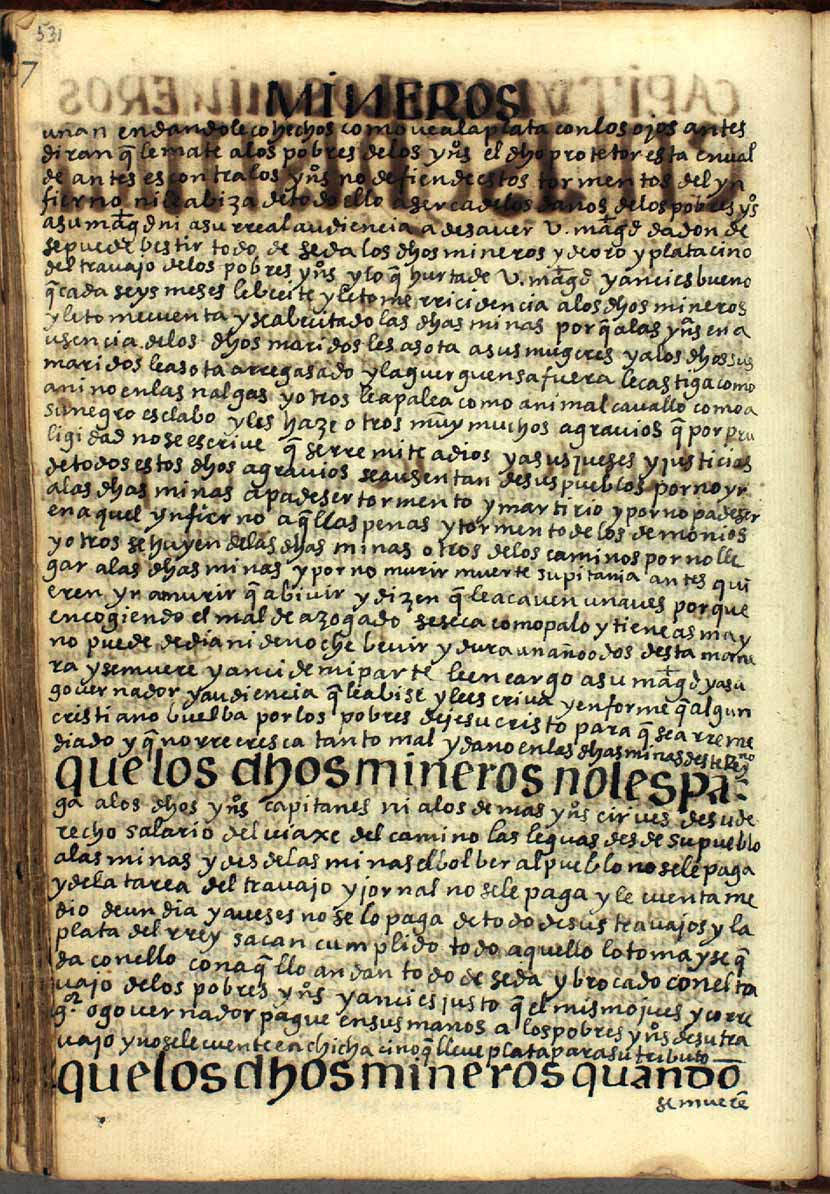 531
7
MINEROS
unan en dandole cohechos como vea la plata con los ojos antes
diran q̃ le mate a los pobres de los yn̄s el dho protetor esta en ual
de antes es contra los yn̄s no defiende estos tormentos del yn
fierno ni le abiza de todo ello aserca de los daños de los pobres yn̄s
a su mag̃d ni a su rreal audiencia a de sauer v. mag̃d dadonde
se puede bestir todo de seda los dhos mineros y de oro y plata cino
del trauajo de los pobres yn̄s y lo q̃ hurta de v. mag̃d y anci es bueno
q̃ cada seys meses le becite y le tome rricidencia a los dhos mineros
y le tome cuenta y sea becitado las dhas minas porq̃ a las yn̄s en a
usencia de los dhos maridos les asota a sus mugeres y a los dhos sus
maridos le asota arregasado y la guerguensa fuera le castiga como
a nino en las nalgas y otros le apalea como animal cauallo como a
su negro esclabo y les haze otros muy muchos agrauios q̃ por pru
ligidad no se escriue q̃ se rremite a dios y a sus jueses y justicias
de todos estos dhos agrauios se ausentan de sus pueblos por no yr
a las dhas minas a padeser tormento y martirio y por no padeser
en aquel ynfierno aq̃llas penas y tormento de los demonios
y otros se huyen de las dhas minas otros de los caminos por no lle
gar a las dhas minas y por no murir muerte supitania antes qui
eren yr a murir q̃ a biuir y dizen q̃ le acauen una ues porque
en cogiendo el mal de azogado se seca como palo y tiene asma y
no puede de dia ni de noche beuir y dura un año o dos desta mane
ra y se muere y anci de mi parte le encargo a su mag̃d y a su
gouernador y audiencia q̃ le abise y lees criua y enforme q̃ algun
cristiano buelba por los pobres de jesucristo para q̃ sea rreme
diado y q̃ no rrecresca tanto mal y daño en las dhas minas deste rreyno
que los dhos mineros no les pa-
ga a los dhos yn̄s capitanes ni a los demas yn̄s cirues de su de
recho salario del uiaxe del camino las leguas desde su pueblo
a las minas y desde las minas el bolber al pueblo no se le paga
y de la tarea del trauajo y jornal no se le paga y le cuenta me
dio de un dia y a ueses no se lo paga de todo de sus trauajos y la
plata del rrey sacan cumplido todo aquello lo toma y se q̃
da con ello con aq̃llo andan todo de seda y brocado con el tra
uajo de los pobres yn̄s y anci es justo q̃ el mismo jues y corre
g.or o gouernador pague en sus manos a los pobres yn̄s de su tra
uajo y no se le cuente en chicha cino q̃ lleue plata para su tributo
que los dhos mineros quando
se muere